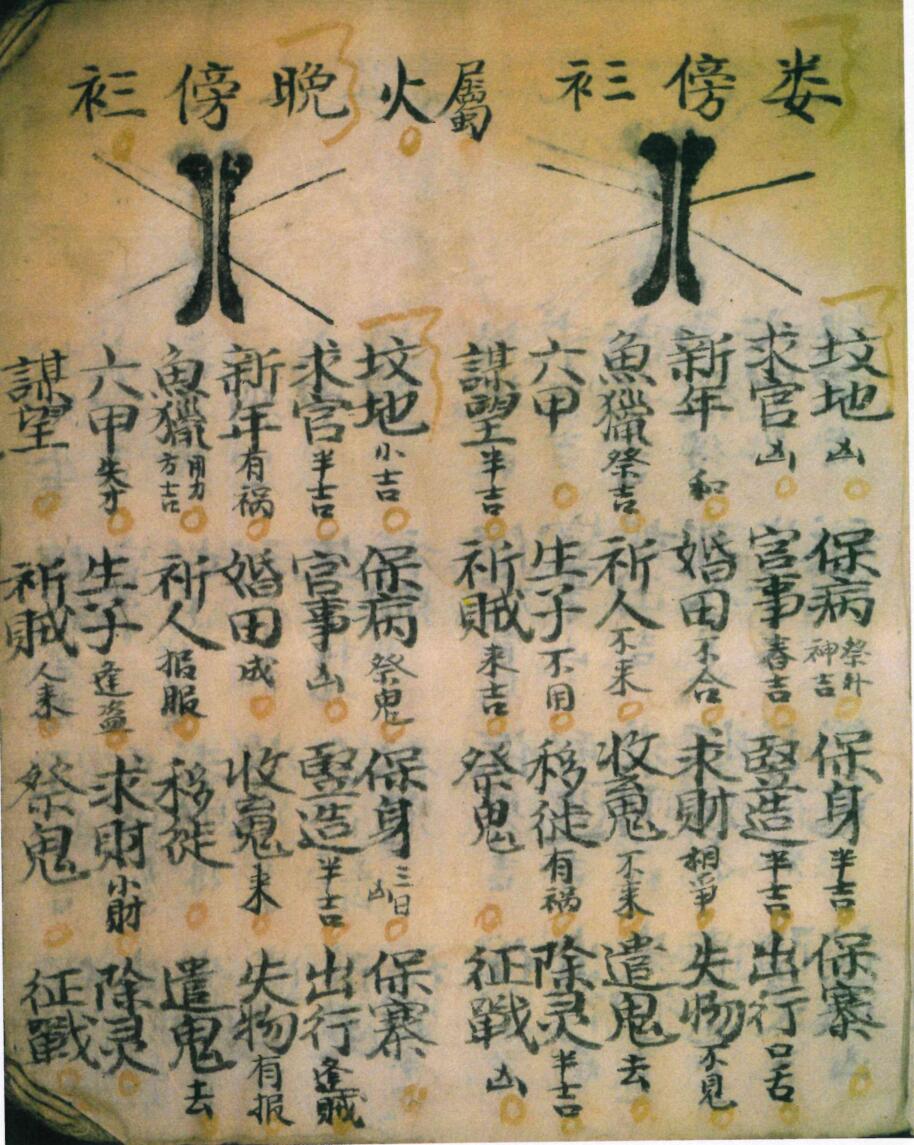 娄傍衫三
屬火晚傍衫三
坟地凶 保病祭外神吉 保身半吉 保寨
求官凶 官事春吉 竪造半吉 出行口舌
新年和 婚田不合 求財相爭 失物不見
魚獵祭吉 祈人不来 收䰟不来 遣鬼去
六甲 生子不用 移徙有祸 除灵半吉
謀望半吉 祈賊来吉 祭鬼 征戰凶
坟地小吉 保病祭鬼 保身三日凶 保寨
求官半吉 官事凶 竪造半吉 出行逢賊
新年有祸 婚田成 收䰟来 失物有报
魚獵用力方吉 祈人报服 移徙 遣鬼去
六甲失才 生子逢盗 求財小財 除灵
謀望 祈賊人来 祭鬼 征戰